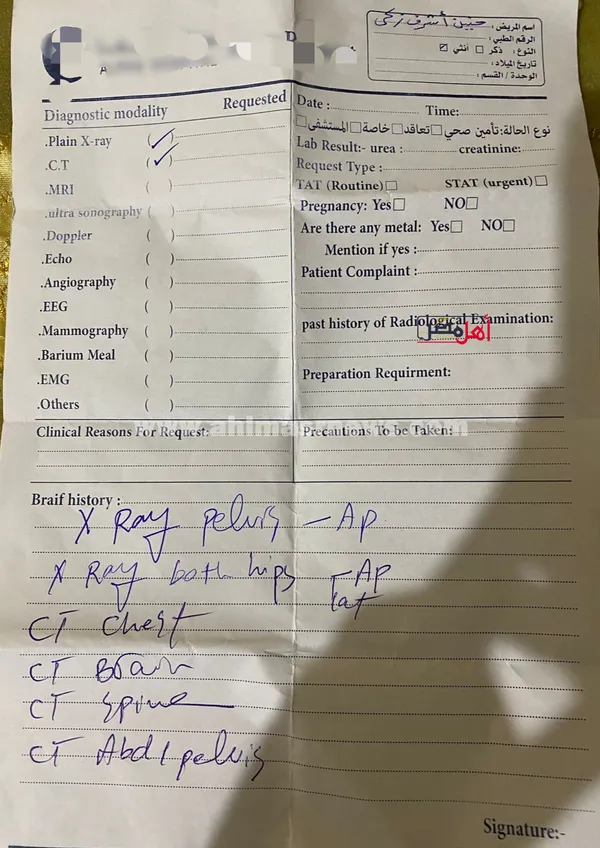 اسم المريض: حنين أشرف زكى
الرقم الطبي:
النوع: ذكر □ أنثي ☑
تاريخ الميلاد:
الوحدة / القسم:
Diagnostic modality Requested
.Plain X-ray (✓)
.C.T (✓)
.MRI ( )
.ultra sonography ( )
.Doppler ( )
.Echo ( )
.Angiography ( )
.EEG ( )
.Mammography ( )
.Barium Meal ( )
.EMG ( )
.Others ( )
Clinical Reasons For Request:
Date : Time:
نوع الحالة: تأمين صحي □ تعاقد □ خاصة □ المستشفى □
Lab Result:- urea : creatinine:
Request Type :
TAT (Routine) □ STAT (urgent) □
Pregnancy: Yes □ NO □
Are there any metal: Yes □ NO □
Mention if yes :
Patient Complaint :
past history of Radiological Examination:
أهل مصر
Preparation Requirment:
Precautions To be Taken:
Braif history :
X Ray pelvis - AP
X Ray both hips AP
Lat
CT Chest
CT Brain
CT Spine
CT Abd / pelvis
Signature:-